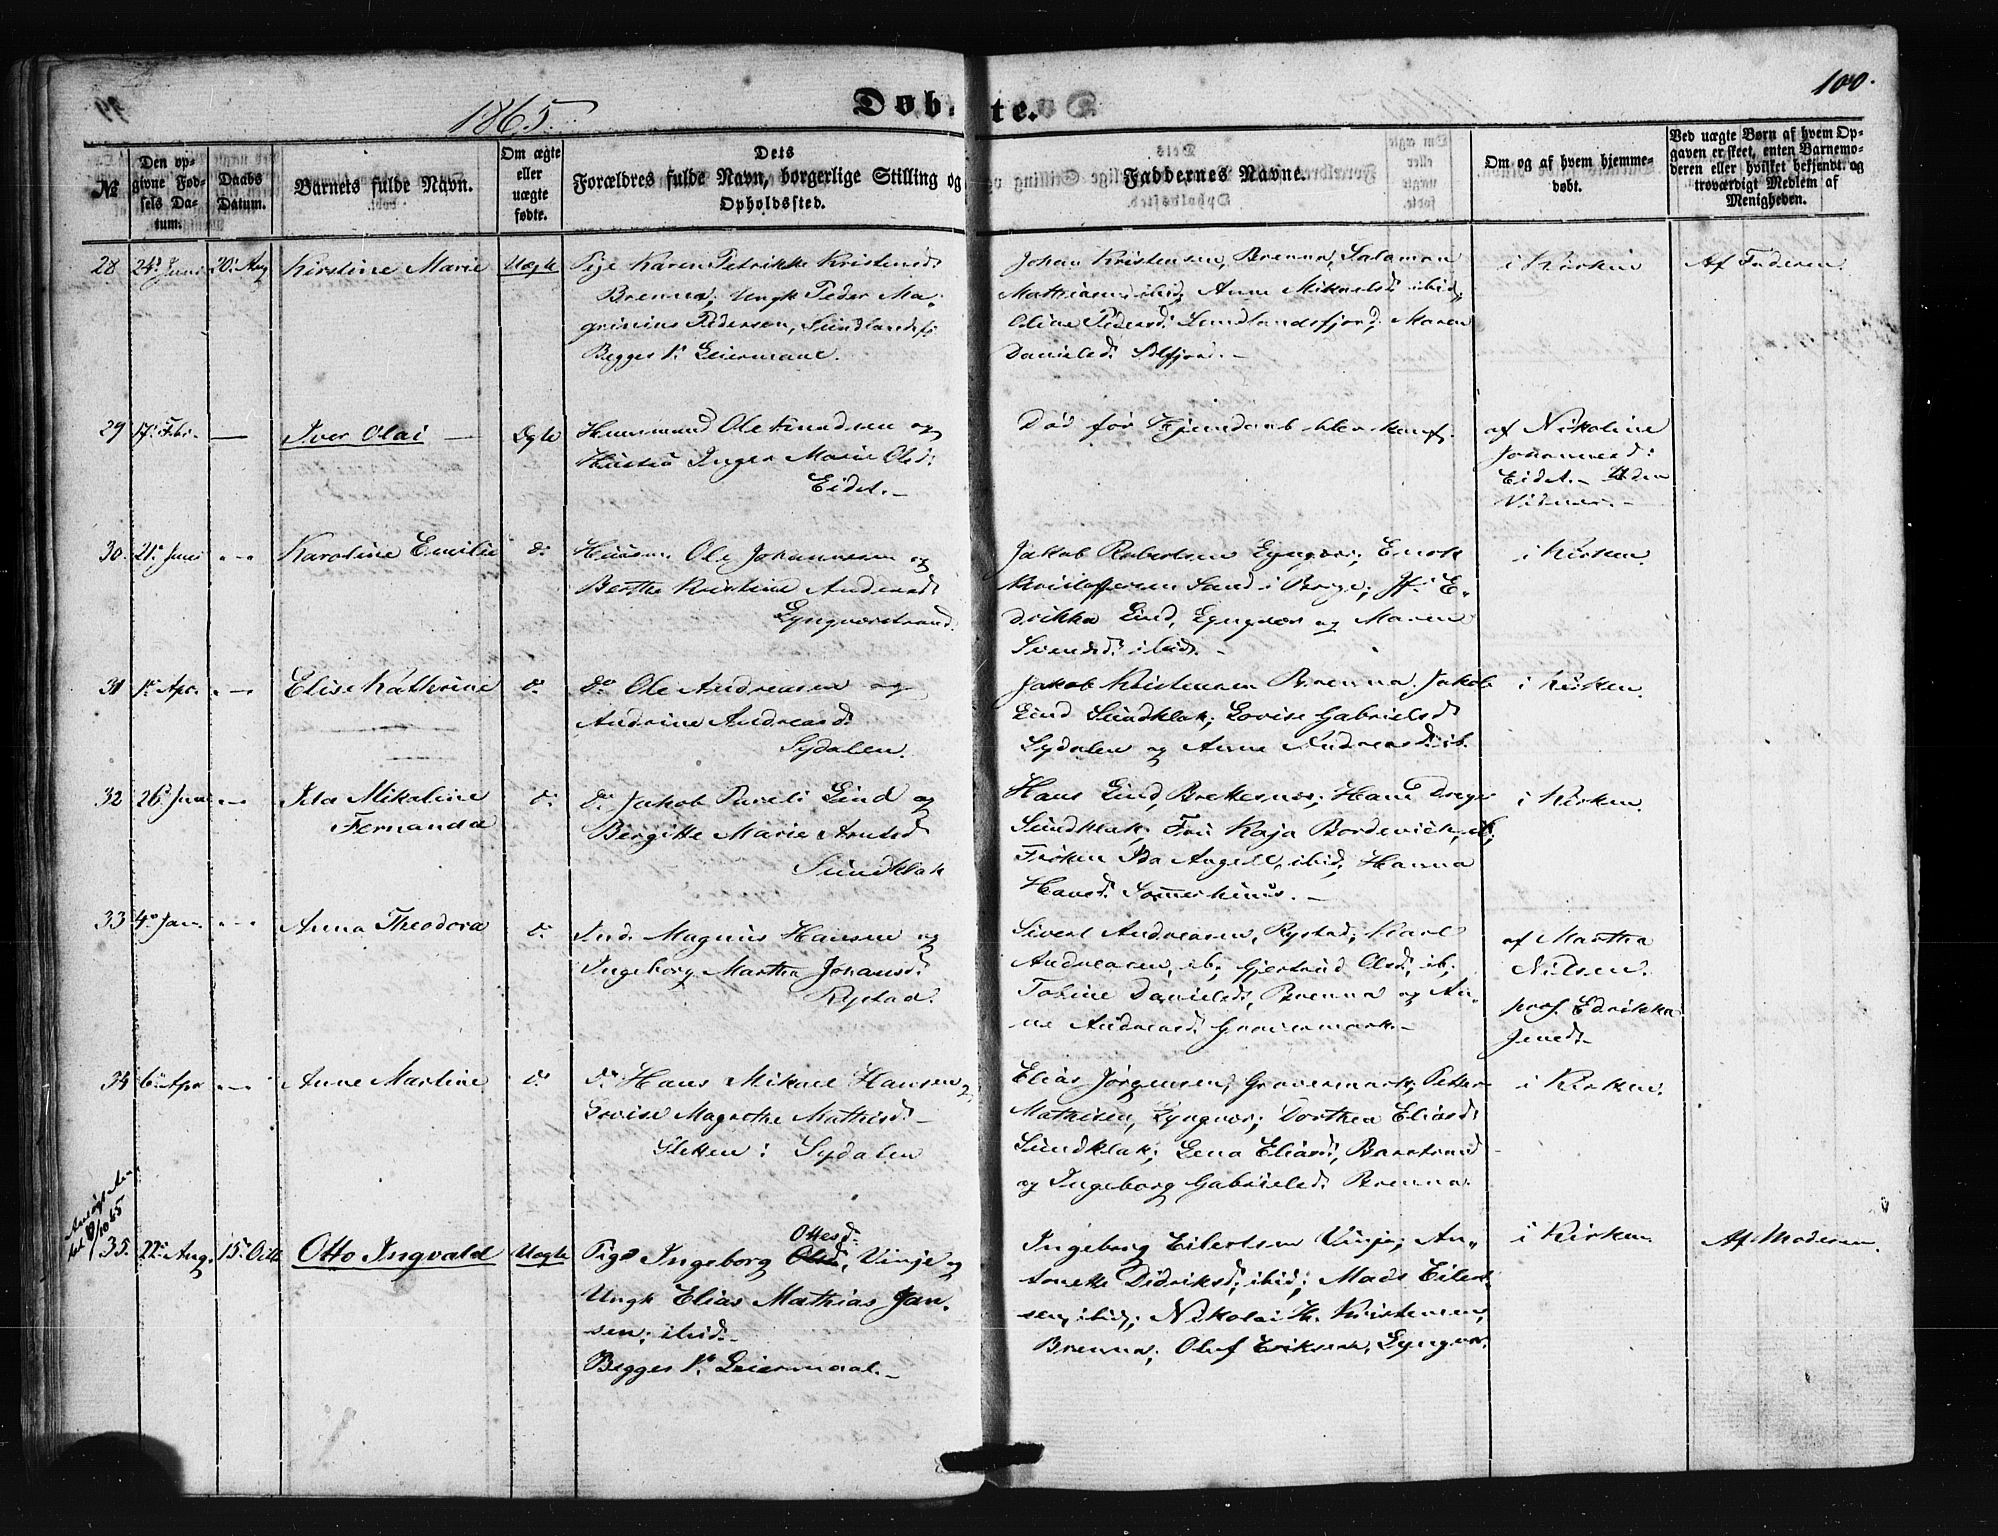 1865.
Døbte.
100.
№
Den opgivne Fødsels Datum.
Daabs Datum.
Barnets fulde Navn.
Om ægte eller uægte fødte.
Dets Forældres fulde Navn, borgerlige Stilling og Opholdssted.
Faddernes Navne.
Om og af hvem hjemmedøbt.
Ved uægte Børn af hvem Opgaven er skeet, enten Barnemoderen eller hvilket bekjendt og troværdigt Medlem af Menigheden.
28 24d Juni 20. Aug Kirstine Marie Uægte
Pige Karen Petrikke Kristensd.
Brenna, Ungk Peder Ma-
grinius Pedersen, Sundlandsfj.
Begges 1. Leiermaal.
Johan Kristensen, Brenna, Salamon
Mathiasen ibid, Anne Mikaelsd ibid,
Oline Pedersd. Sundlandsfjord, Maren
Danielsd.
i Kirken
Af Faderen.
29 17. Feb. — Iver Olai — Ægte
Huusmand Ole Knudsen og
Hustrū Inger Marie Olsd.
Eidet.-
Død før Hjemdaab blev
af Nikoline
Johannesd:
Eidet.- Uden
Vidner.-
30. 21. Juni Karoline Emilie d.
Huusm. Ole Johannesen og
Berthe Kristine Andersd
Lyngværstrand.
Jakob Robertsen Lyngvær; Enok
Kristoffersen Sand i Borge; Jf. E-
drikka Lind, Lyngvær og Maren
Svendsd. ibid.-
i Kirken.
31 1. Apr. Elise Kathrine d.
do Ole Andreasen og
Andrine Andreasd.
Sydalen.
Jakob Kristensen Brenna, Jakob
Lind Sūndklak; Lovise Gabrielsd
Sydalen og Anne Andreasd. ib.
i Kirken.
32 26. Juni Ida Mikaline
Fernanda d.
d. Jakob Pareli Lind og
Birgitte Marie Arntsd
Sūndklak
Hans Lind, Brettesnæs; Hans Dreyer
Sūndklak, Frū Kaja Bordevick, ib;
Frøken Ida Angell, ibid, Hanna
Hansd. Sommerhūūs.-
i Kirken.
33 4. Jan. Anna Theodora d.
Ind. Magnus Hansen og
Ingeborg Martha Johansd.
Rystad.
Sivert Andreasen, Rystad; Karl
Andreasen, ib; Gjertrud Olsd, ib;
Tobine Danielsd, Brenna og An-
ne Andreasd. Gravermark.-
af Martha
Nilsen.
prof. Edrikka
Jensd.-
34 6. Apr Anne Martine d.
d. Hans Mikael Hansen og
Lovise Magrethe Mathisd.-
Flekken i Sydalen
Elias Jørgensen, Gravermark, Petter
Mathisen, Lyngvær; Dorthea Eliasd.
Sūndklak; Lena Eliasd, Barstrand
og Ingeborg Gabrielsd. Brenna.
i Kirken.
8/10 65
35. 22. Aug. 15. Octb Otto Ingvald Uægte
Ottesd.
Pige Ingeborg Olsd, Vinje og
Ungk Elias Mathias Jan-
sen; ibid.-
Begges 1. Leiermaal.-
Ingeborg Eilertsen Vinje, An-
tonette Didriksd; ibid; Mads Eilert-
sen, ibid; Nikolai H. Kristensen,
Brenna; Oluf Eriksen, Lyngvær.
i Kirken
Af Moderen.